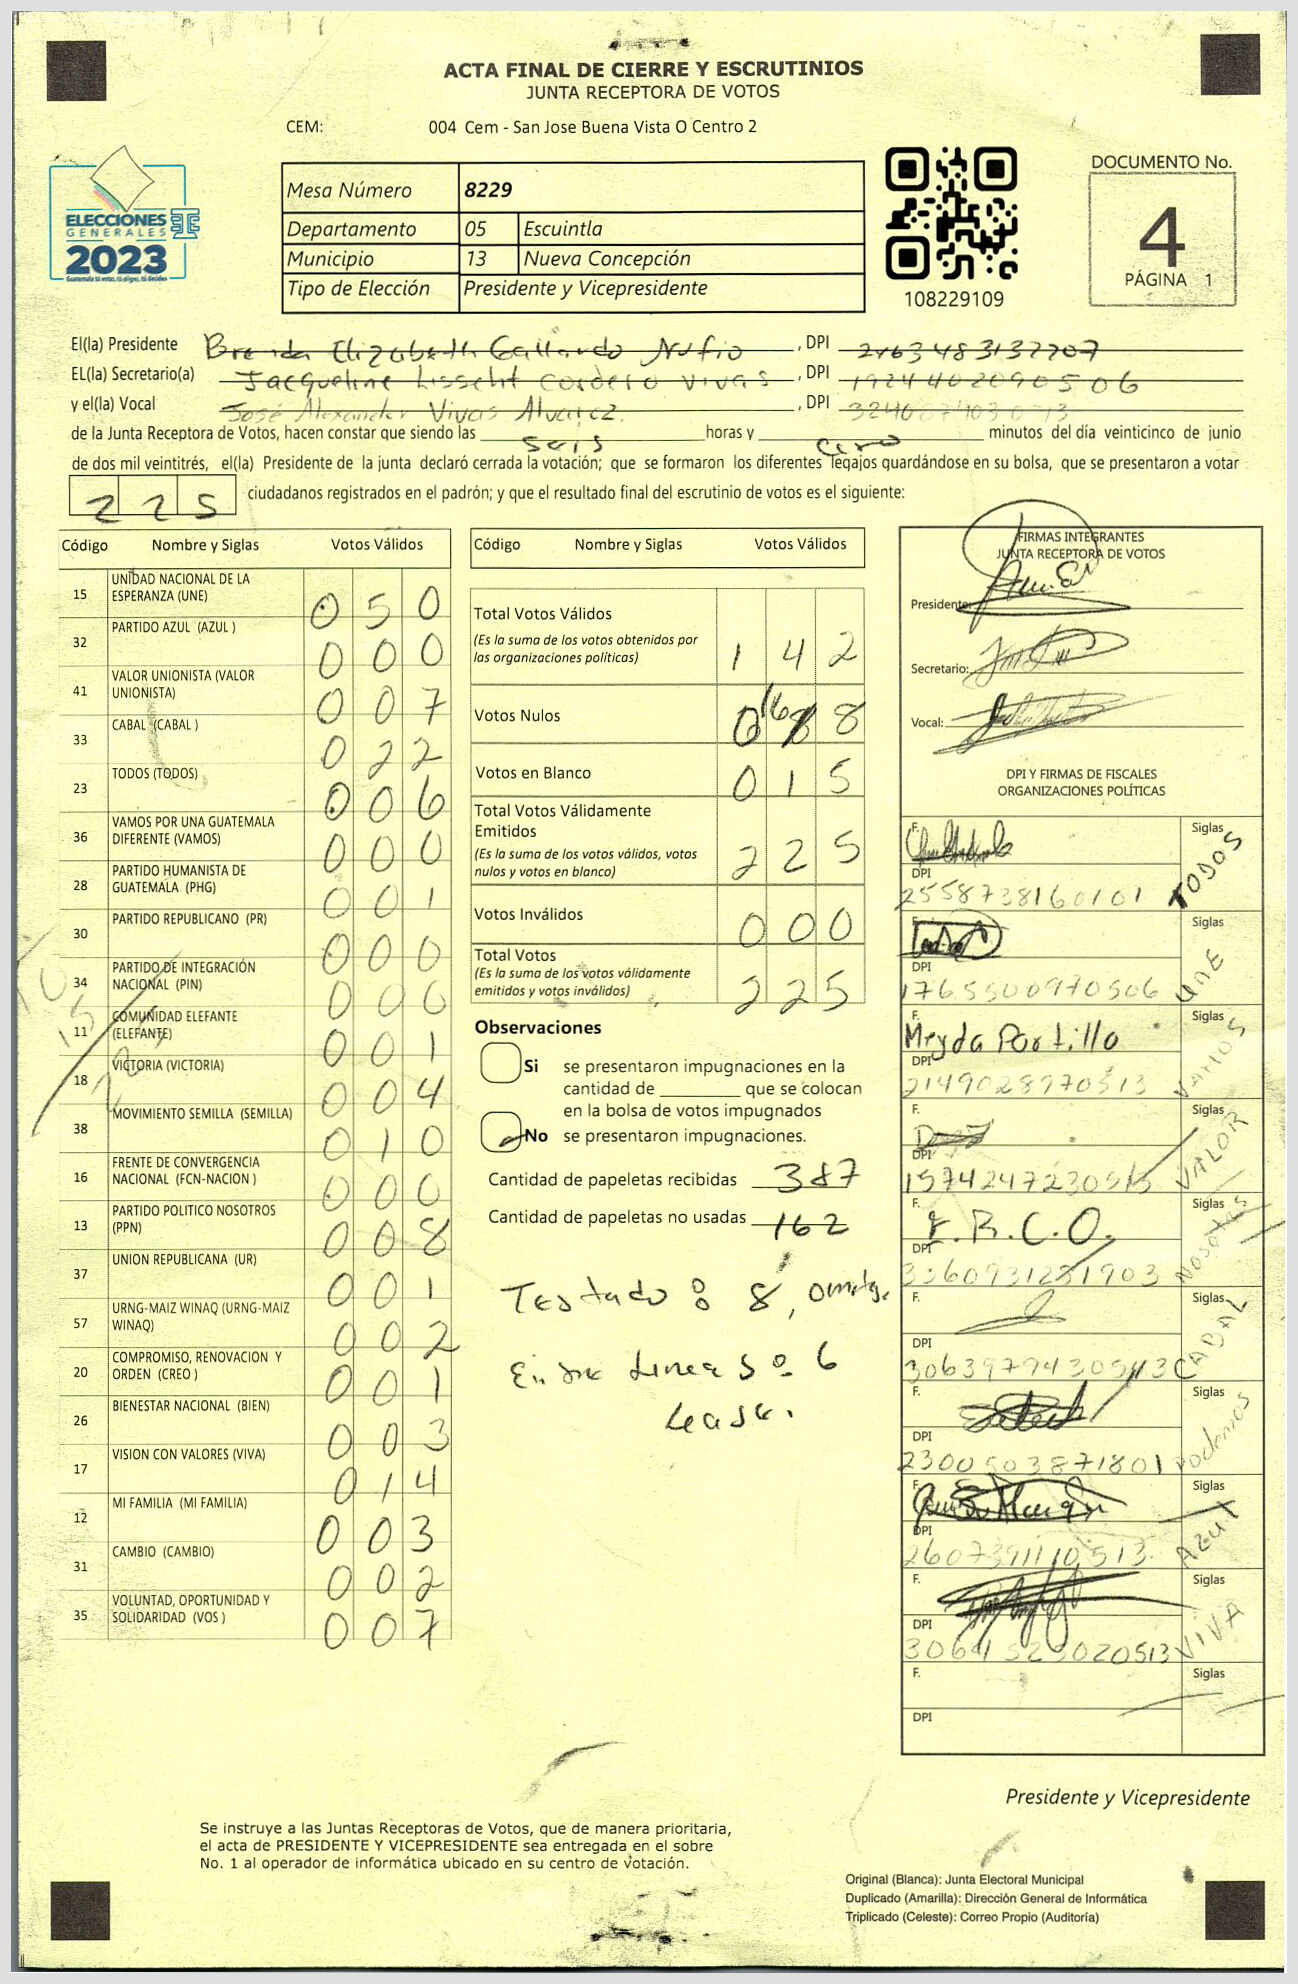 ACTA FINAL DE CIERRE Y ESCRUTINIOS
JUNTA RECEPTORA DE VOTOS
CEM: 004 Cem - San Jose Buena Vista O Centro 2
ELECCIONES
GENERALES
2023
Mesa Número 8229
Departamento 05 Escuintla
Municipio 13 Nueva Concepción
Tipo de Elección Presidente y Vicepresidente
108229109
DOCUMENTO No.
4
PÁGINA 1
El(la) Presidente Brenda Elizabeth Gallardo Nufio, DPI
EL(la) Secretario(a) Jacqueline Lisseht Cordero Vivas, DPI 1924402090506
y el(la) Vocal José Alexander Vivas Alvarez., DPI
de la Junta Receptora de Votos, hacen constar que siendo las seis horas y cero minutos del día veinticinco de junio
de dos mil veintitrés, el(la) Presidente de la junta declaró cerrada la votación; que se formaron los diferentes legajos guardándose en su bolsa, que se presentaron a votar
225 ciudadanos registrados en el padrón; y que el resultado final del escrutinio de votos es el siguiente:
Código Nombre y Siglas Votos Válidos
15 UNIDAD NACIONAL DE LA ESPERANZA (UNE) 050
32 PARTIDO AZUL (AZUL ) 000
41 VALOR UNIONISTA (VALOR UNIONISTA) 007
33 CABAL (CABAL ) 022
23 TODOS (TODOS) 006
36 VAMOS POR UNA GUATEMALA DIFERENTE (VAMOS) 000
28 PARTIDO HUMANISTA DE GUATEMALA (PHG) 001
30 PARTIDO REPUBLICANO (PR) 000
34 PARTIDO DE INTEGRACIÓN NACIONAL (PIN) 000
11 COMUNIDAD ELEFANTE (ELEFANTE) 001
18 VICTORIA (VICTORIA) 004
38 MOVIMIENTO SEMILLA (SEMILLA) 010
16 FRENTE DE CONVERGENCIA NACIONAL (FCN-NACION ) 000
13 PARTIDO POLITICO NOSOTROS (PPN) 008
37 UNION REPUBLICANA (UR) 001
57 URNG-MAIZ WINAQ (URNG-MAIZ WINAQ) 002
20 COMPROMISO, RENOVACION Y ORDEN (CREO ) 001
26 BIENESTAR NACIONAL (BIEN) 003
17 VISION CON VALORES (VIVA) 014
12 MI FAMILIA (MI FAMILIA) 003
31 CAMBIO (CAMBIO) 002
35 VOLUNTAD, OPORTUNIDAD Y SOLIDARIDAD (VOS ) 007
Código Nombre y Siglas Votos Válidos
Total Votos Válidos
(Es la suma de los votos obtenidos por
las organizaciones políticas) 142
Votos Nulos 0 6 8 8
Votos en Blanco 015
Total Votos Válidamente
Emitidos
(Es la suma de los votos válidos, votos
nulos y votos en blanco) 225
Votos Inválidos 000
Total Votos
(Es la suma de los votos válidamente
emitidos y votos inválidos) 225
Observaciones
Si se presentaron impugnaciones en la
cantidad de ________ que se colocan
en la bolsa de votos impugnados
No se presentaron impugnaciones.
Cantidad de papeletas recibidas 387
Cantidad de papeletas no usadas 162
Testado: 8,
Entre Lineas: 6
Lease.
FIRMAS INTEGRANTES
JUNTA RECEPTORA DE VOTOS
Presidente:
Secretario:
Vocal:
DPI Y FIRMAS DE FISCALES
ORGANIZACIONES POLÍTICAS
F. Siglas TODOS
DPI
2558738160101
F. Siglas UNE
DPI
1765500970506
F. Meyda Portillo Siglas VAMOS
DPI
2149028970513
F. Siglas VALOR
DPI
1574247230513
F. F.R.C.O. Siglas Nosotros
DPI
3360931281903
F. Siglas CABAL
DPI
F. Siglas Podemos
DPI
2300503871801
F. Siglas Azul
DPI
2607391110513
F. Siglas VIVA
DPI
F. Siglas
DPI
Presidente y Vicepresidente
Se instruye a las Juntas Receptoras de Votos, que de manera prioritaria,
el acta de PRESIDENTE Y VICEPRESIDENTE sea entregada en el sobre
No. 1 al operador de informática ubicado en su centro de votación.
Original (Blanca): Junta Electoral Municipal
Duplicado (Amarilla): Dirección General de Informática
Triplicado (Celeste): Correo Propio (Auditoría)